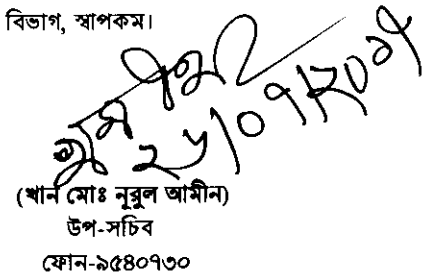 বিভাগ, স্বাপকম।
২৮/০৭/২০১৭
(খান মোঃ নুরুল আমীন)
উপ-সচিব
ফোন-৯৫৪০৭৩০